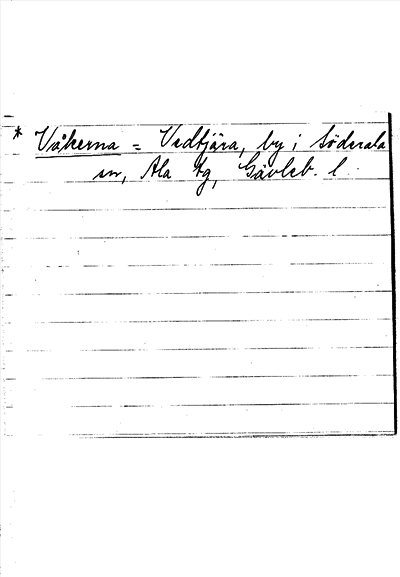 * Våkerna = Vedtjära, by i Söderala
sn, Ala tg, Gävleb. l.